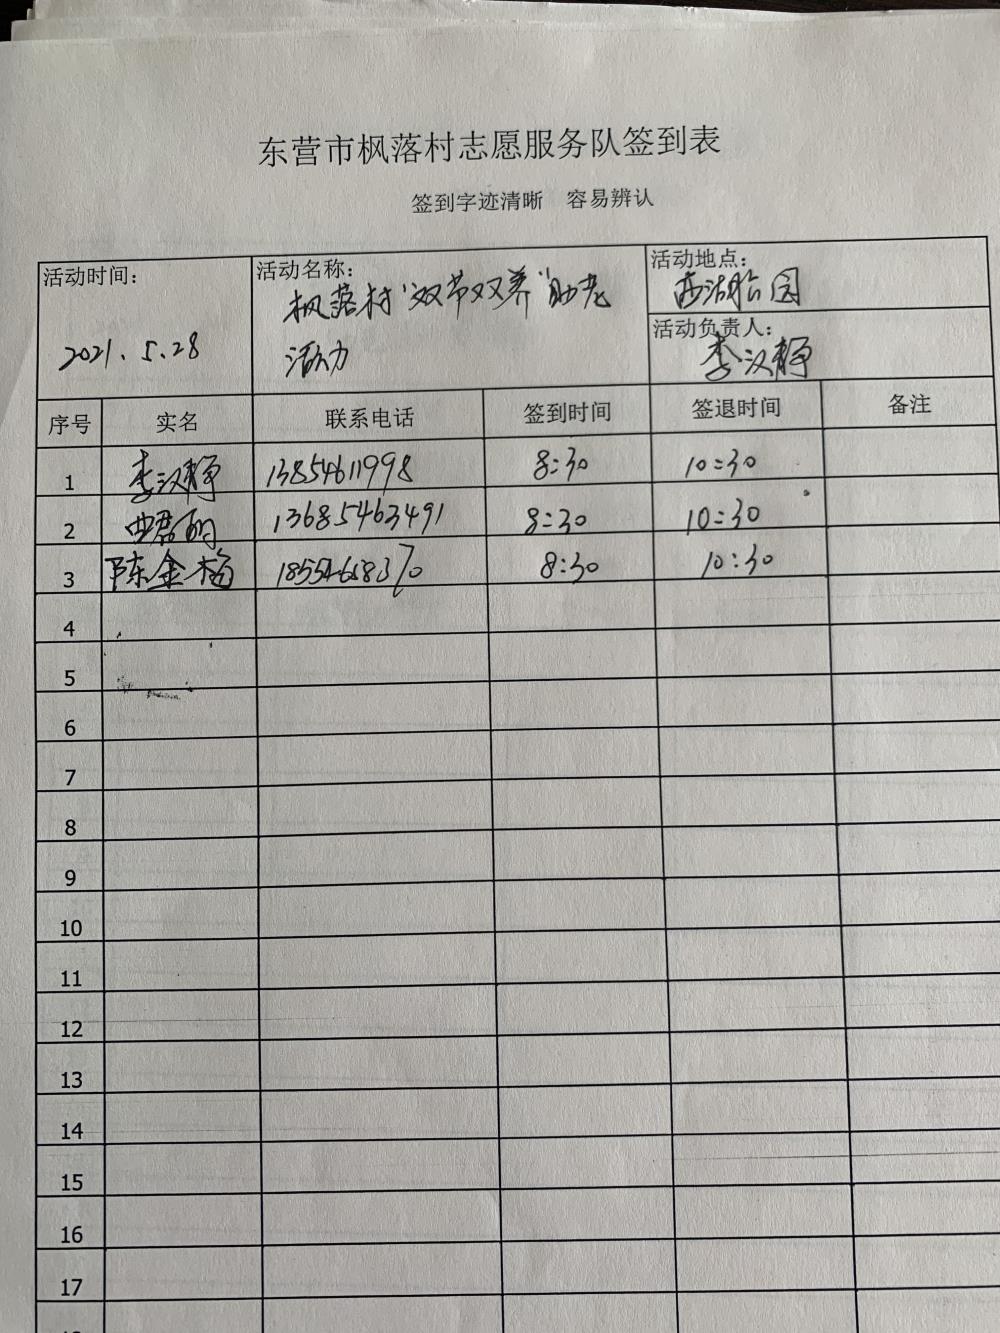 东营市枫落村志愿服务队签到表
签到字迹清晰 容易辨认
活动时间：
2021.5.28
活动名称：
枫落村“双节双养”助老
活动
活动地点：
西湖怡园
活动负责人：
李汉静
序号 实名 联系电话 签到时间 签退时间 备注
1 李汉静 13854611998 8:30 10:30
2 13685463491 8:30 10:30
3 陈金梅 8:30 10:30
4
5
6
7
8
9
10
11
12
13
14
15
16
17